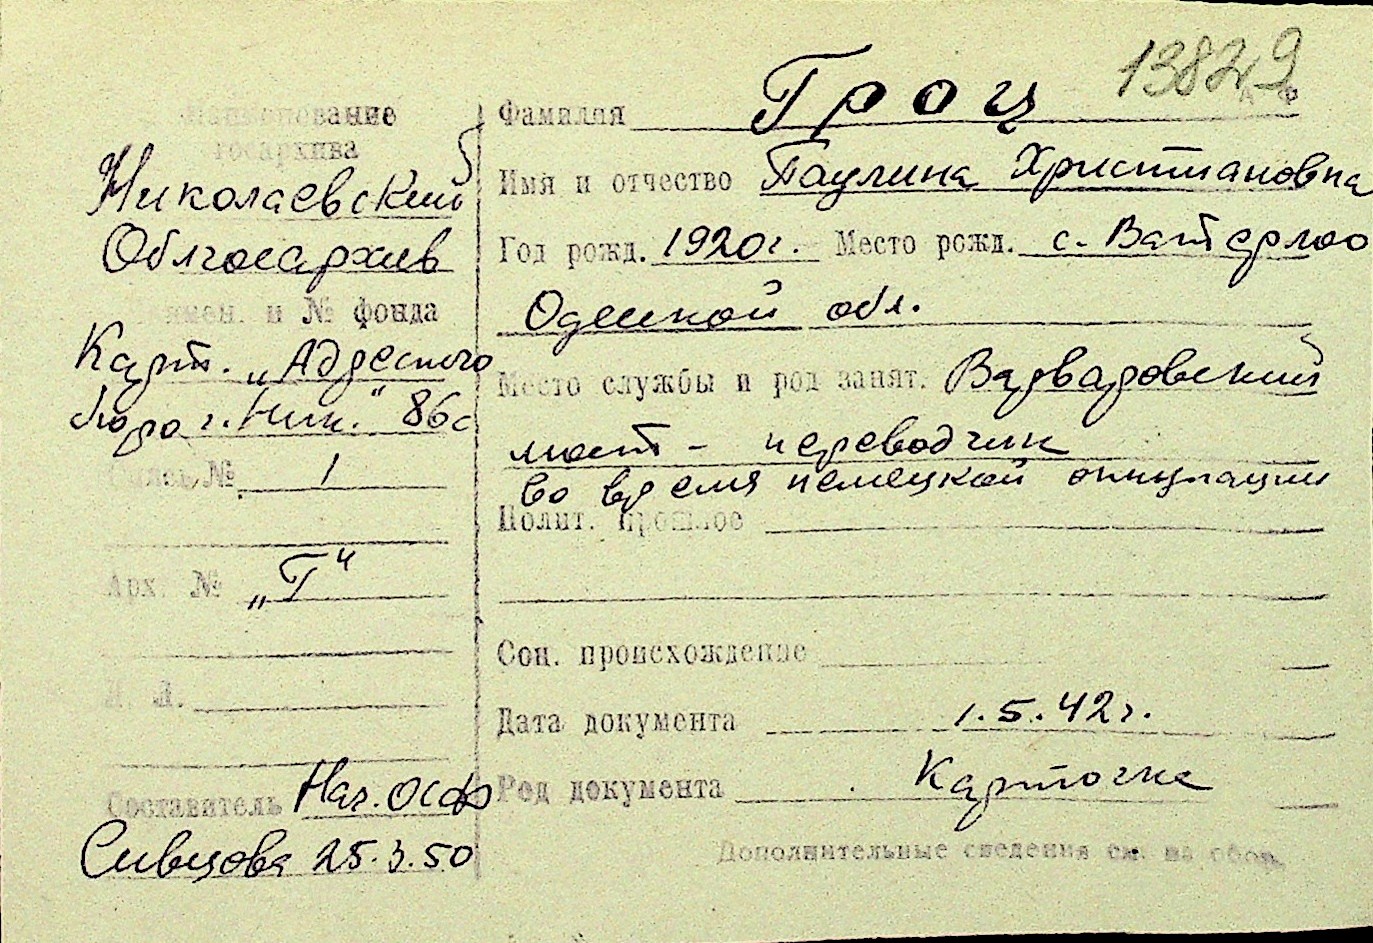 13829
Наименование
госархива
Николаевский
Облгосархив
наимен. и № фонда
Карт. „Адресного
бюро г. Ник." 86с
Связ. № 1
Арх. № „Г"
К. Л.
Составитель Нач. ОСФ
Сивцова 25.3.50
Фамилия Гроц
Имя и отчество Паулина Христиановна
Год рожд. 1920г. Место рожд. с. Ватерлоо
Одесской обл.
Место службы и род занят. Варваровский
мост - переводчик
во время немецкой оккупации
Полит. прошлое
Соц. происхождение
Дата документа 1.5.42г.
Род документа Карточка
Дополнительные сведения см. на обор.